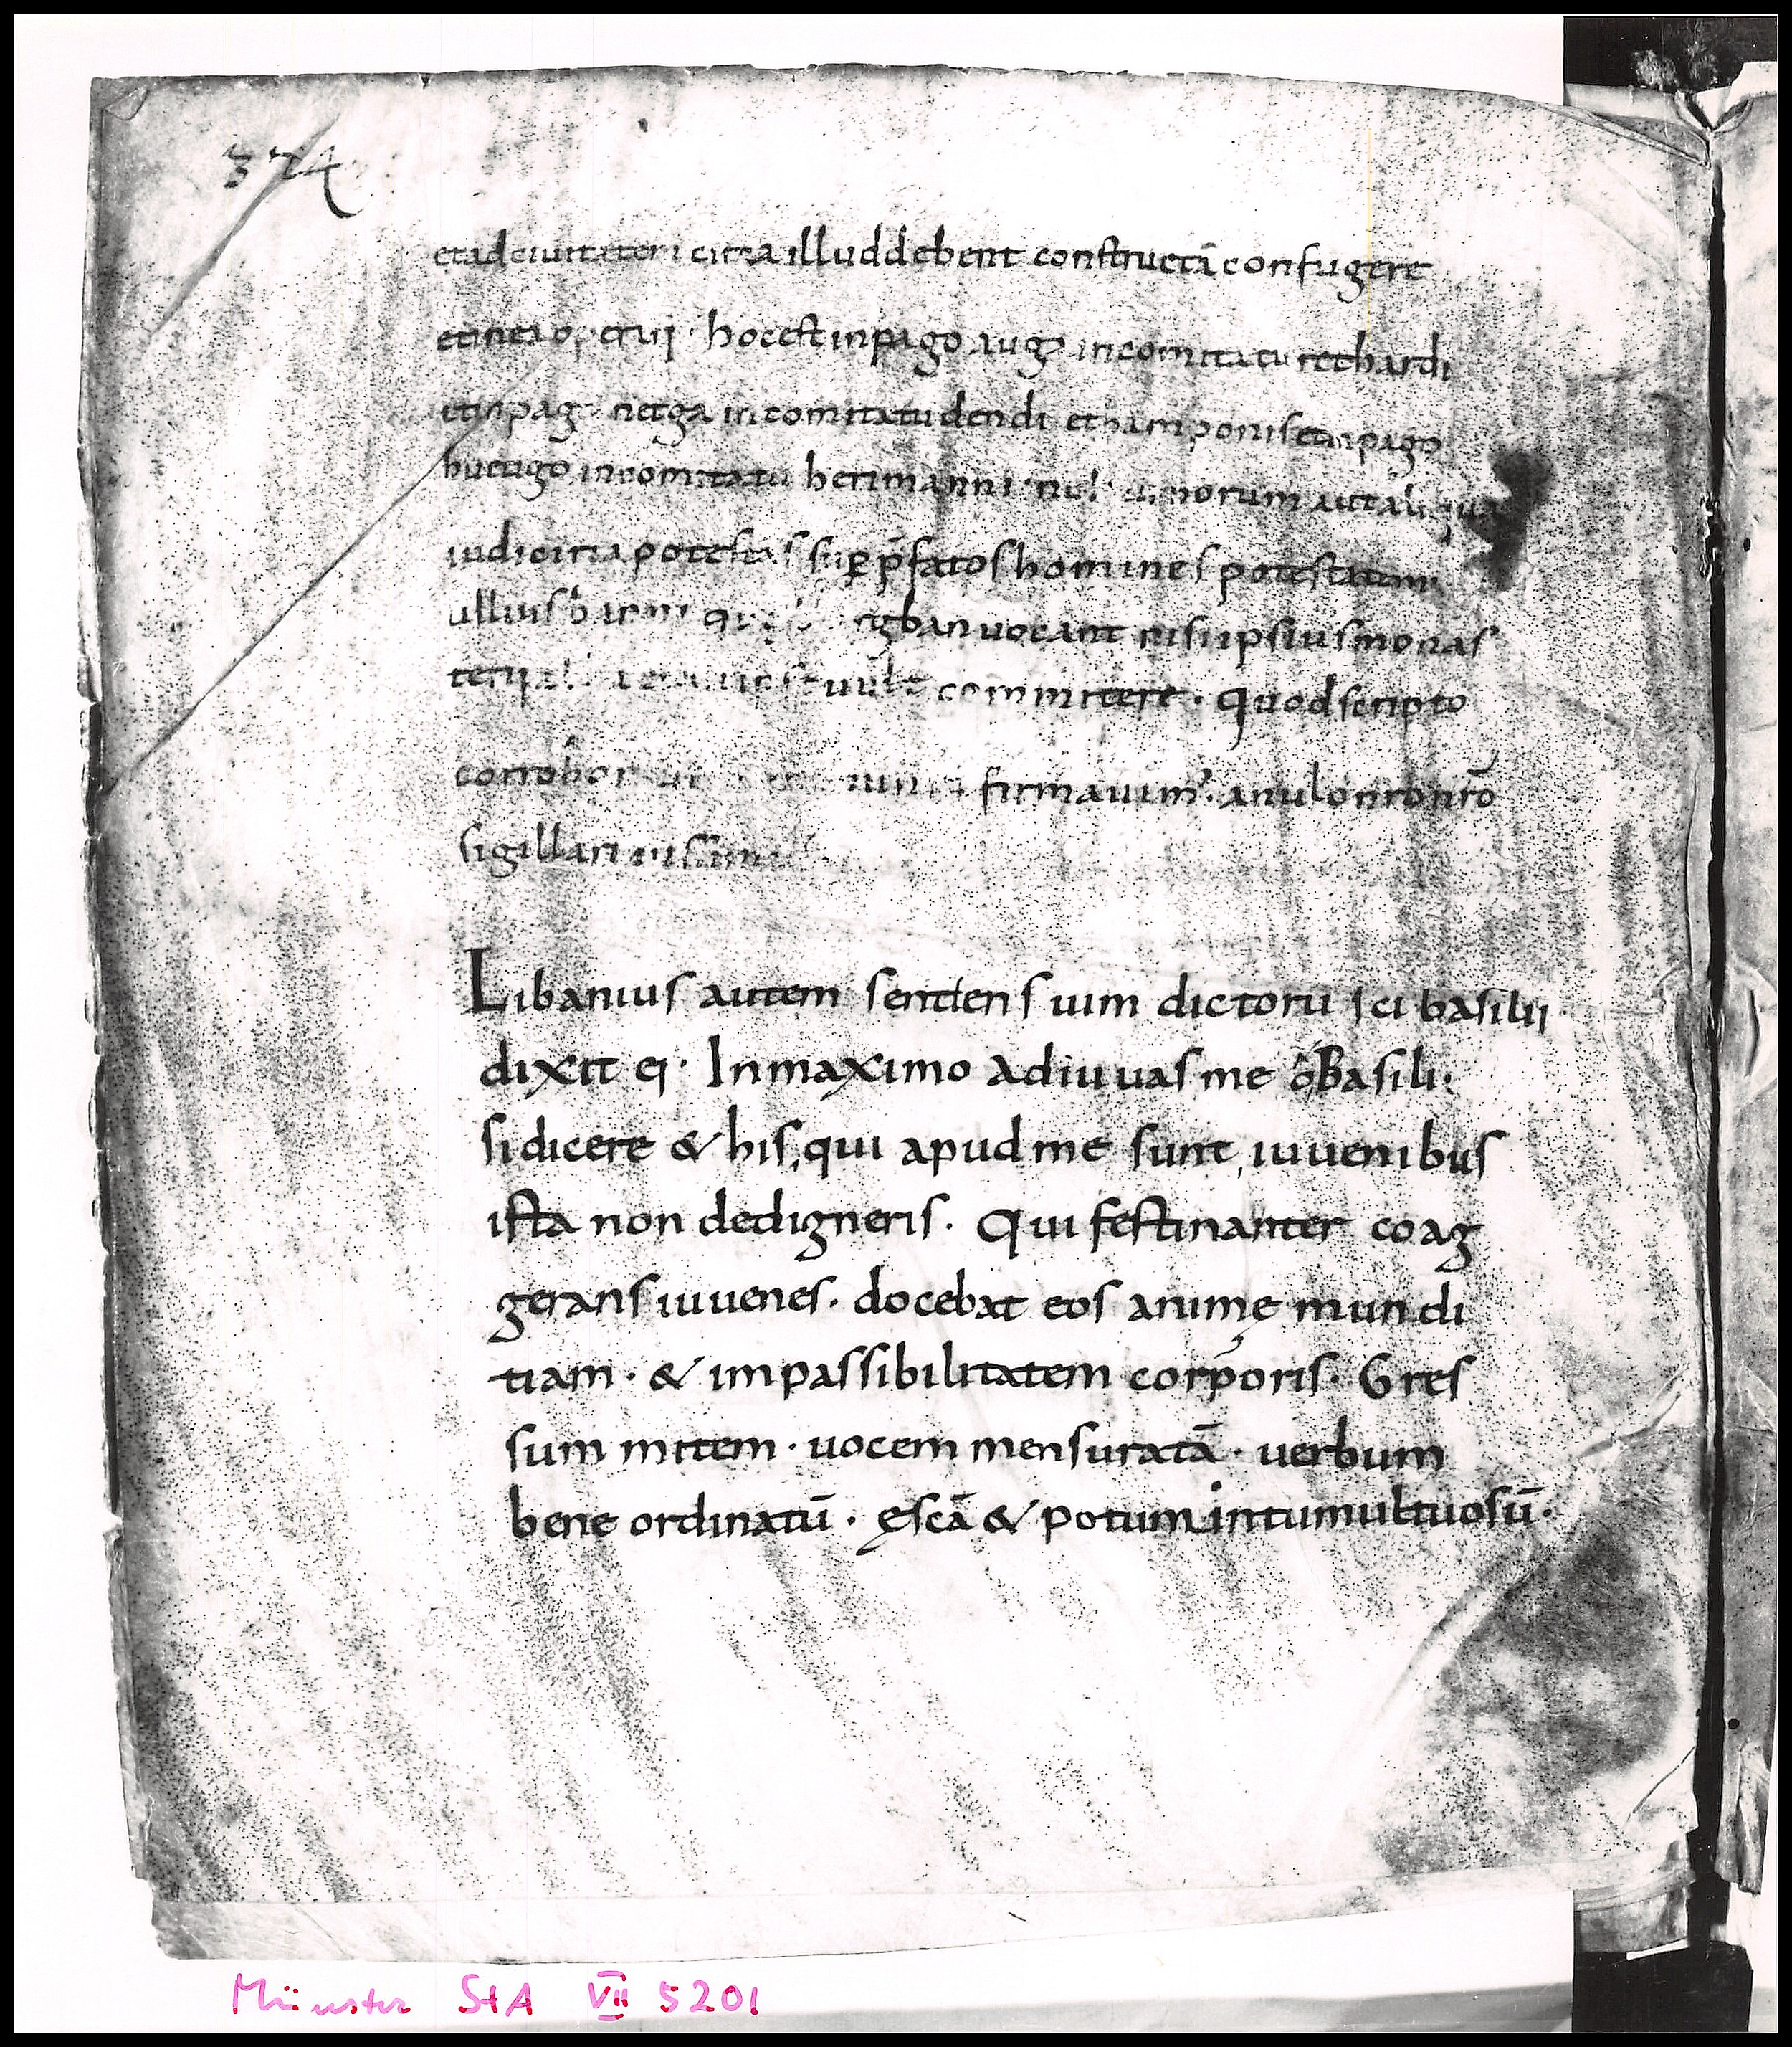 374
et ad ciuitatem circa illud debent constructā confugere
hoc est in pago auga in comitatu rethardi
et in pago netga in comitatu dendi et in pago
huetigo in comitatu herimanni norum aut aliqua
iudiciaria potestas sup p̄fatos homines potestatem
ullius banni ban uocant nisi ipsius monas
terij uult committere. Quod scripto
firmauim'. anulo nr̄o
sigillari iussim'
Libanius autem sentiens uim dictorū sci basilij
dixit ej· In maximo adiuuas me ô Basili:
si dicere & his, qui apud me sunt, iuuenibus
ista non dedigneris. Qui festinanter coag
gerans iuuenes. docebat eos animę mundi
tiam · & impassibilitatem corporis. Gres
sum mitem · uocem mensuratā · uerbum
bene ordinatū · ęscā & potum intumultuosū·
Münster StA VII 5201